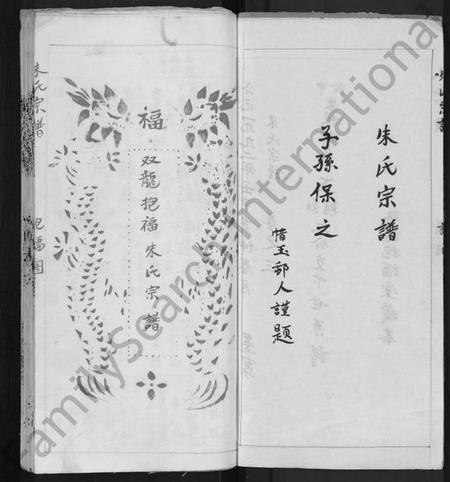 朱氏宗譜
子孫保之
惜玉邨人謹題
福
双龍抱福朱氏宗譜
朱氏宗譜
抱福图
FamilySearch International